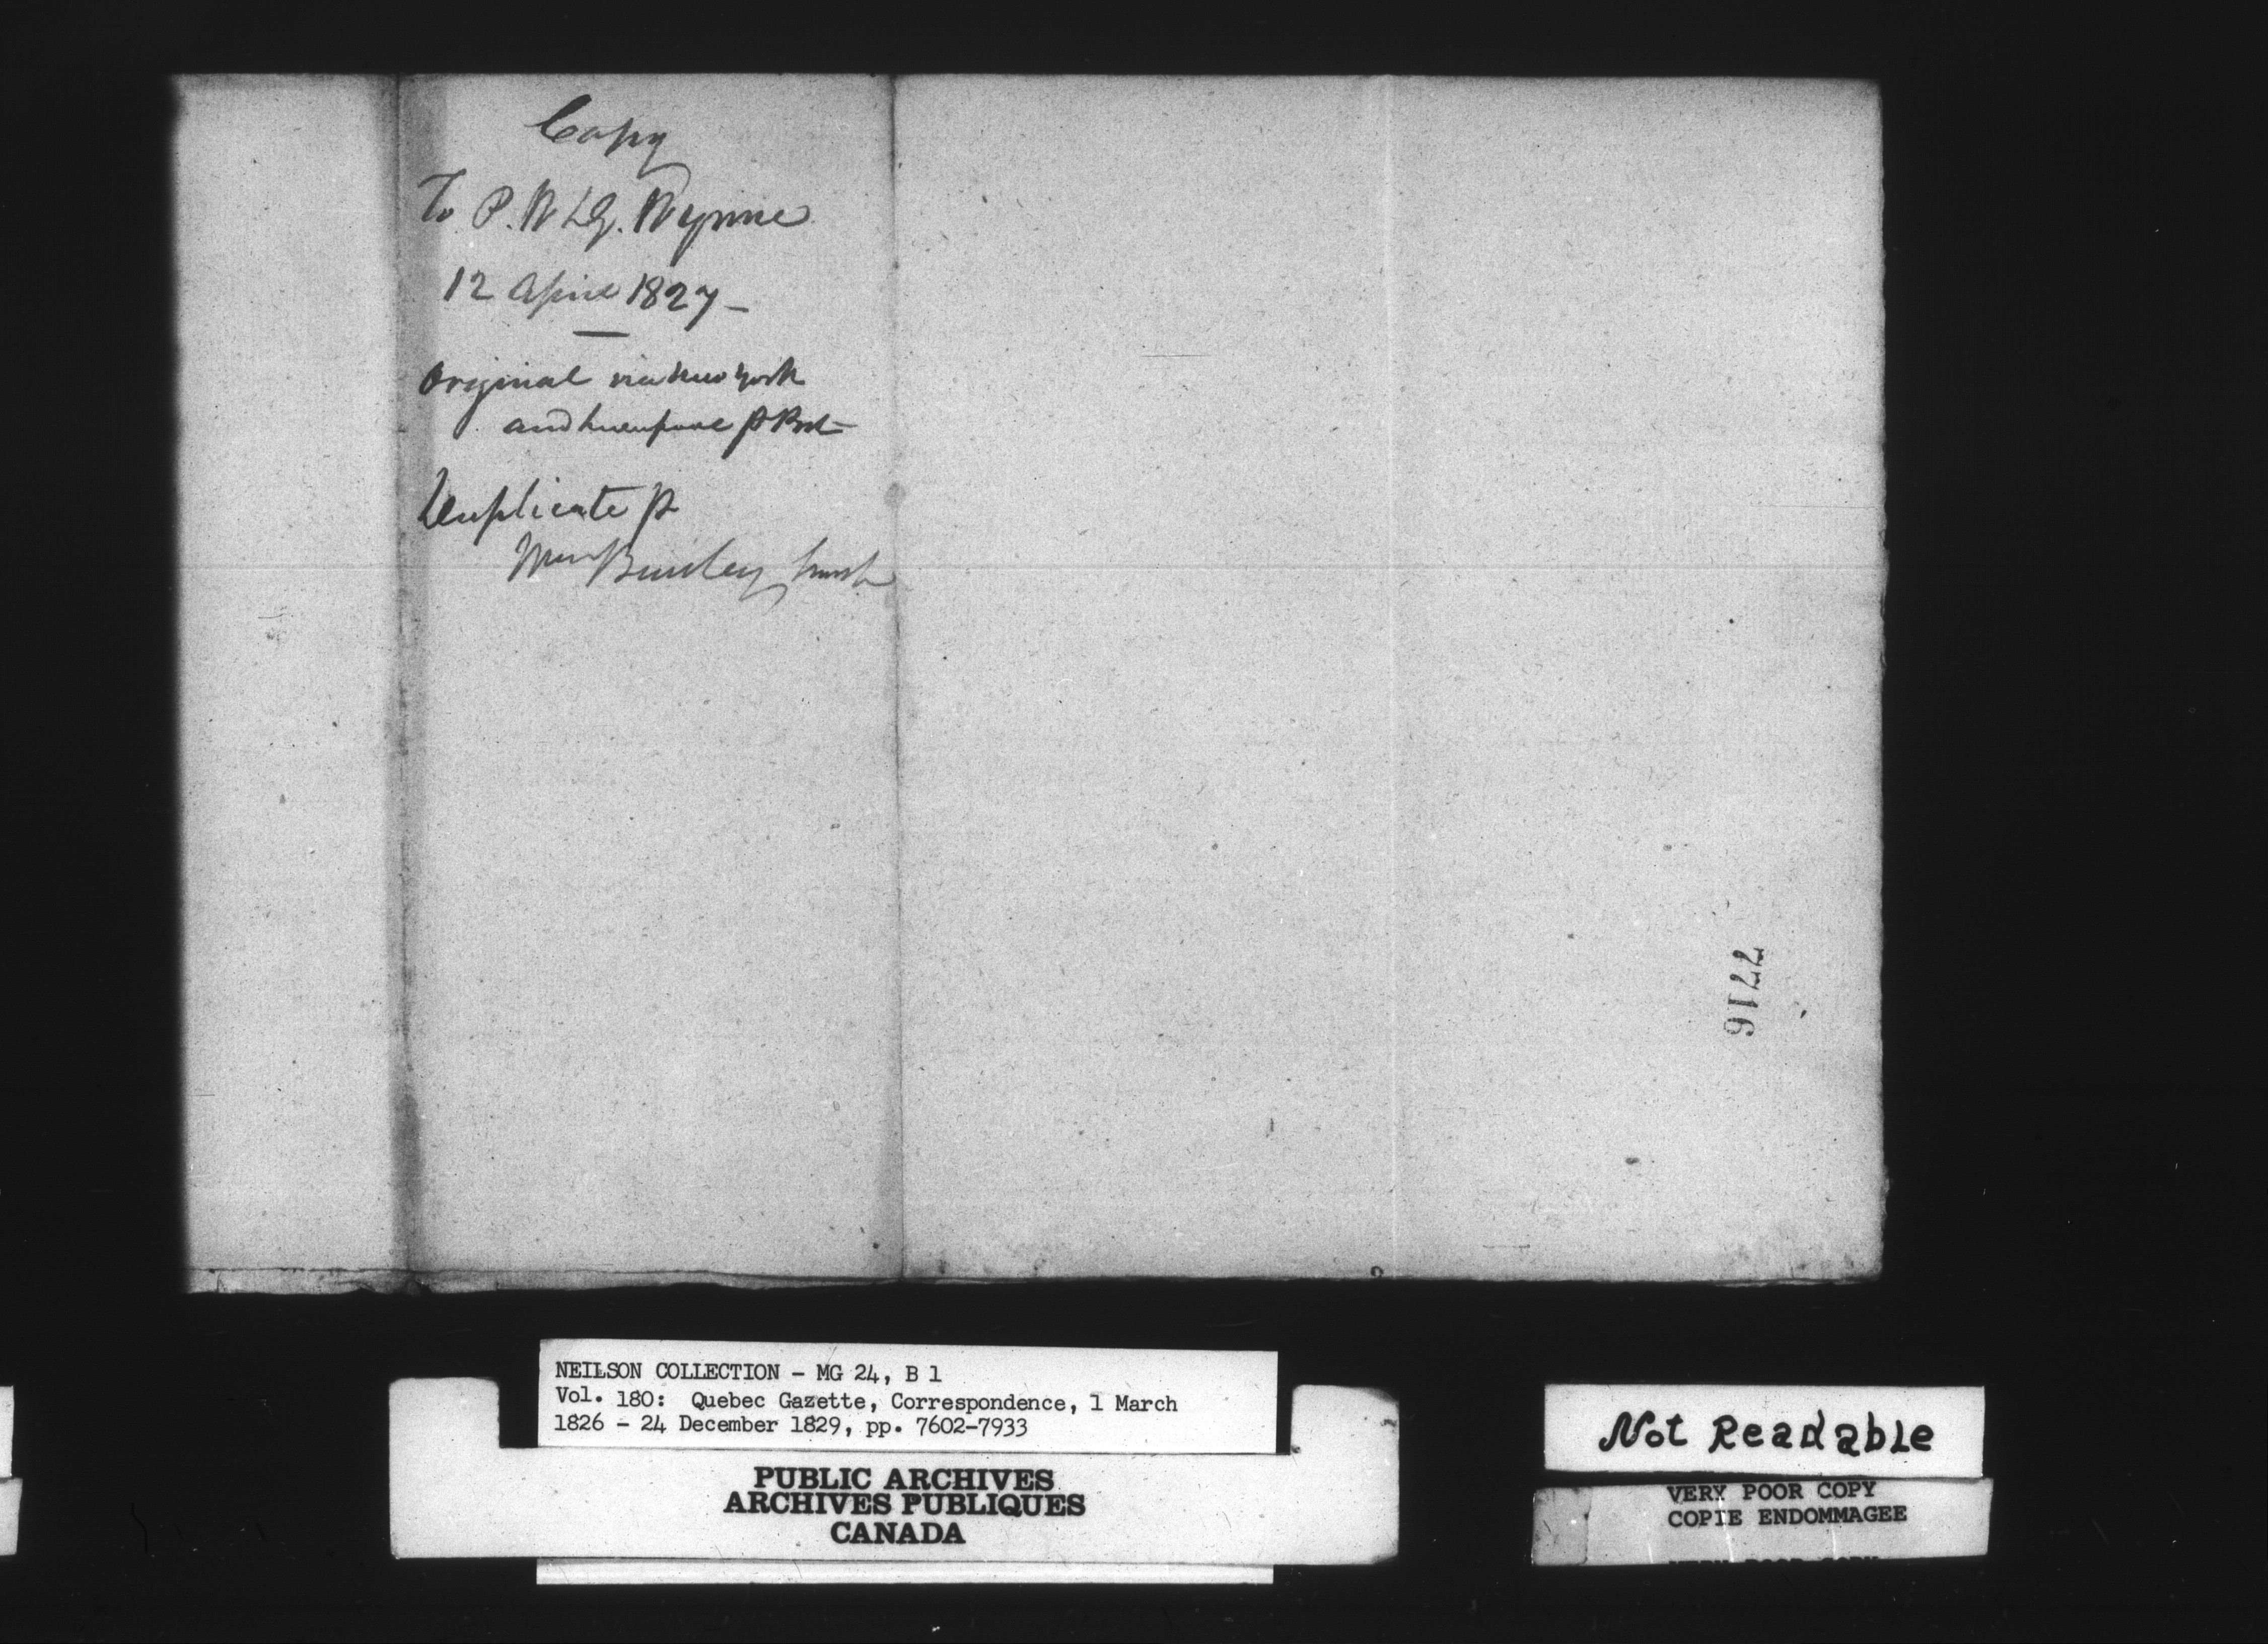 Copy
To P. W & G. Wynne
12 April 1827 —
Original via New York
and Liverpool p Post —
Duplicate p
7716
NEILSON COLLECTION - MG 24, B 1
Vol. 180: Quebec Gazette, Correspondence, 1 March
1826 - 24 December 1829, pp. 7602-7933
PUBLIC ARCHIVES
ARCHIVES PUBLIQUES
CANADA
Not Readable
VERY POOR COPY
COPIE ENDOMMAGEE